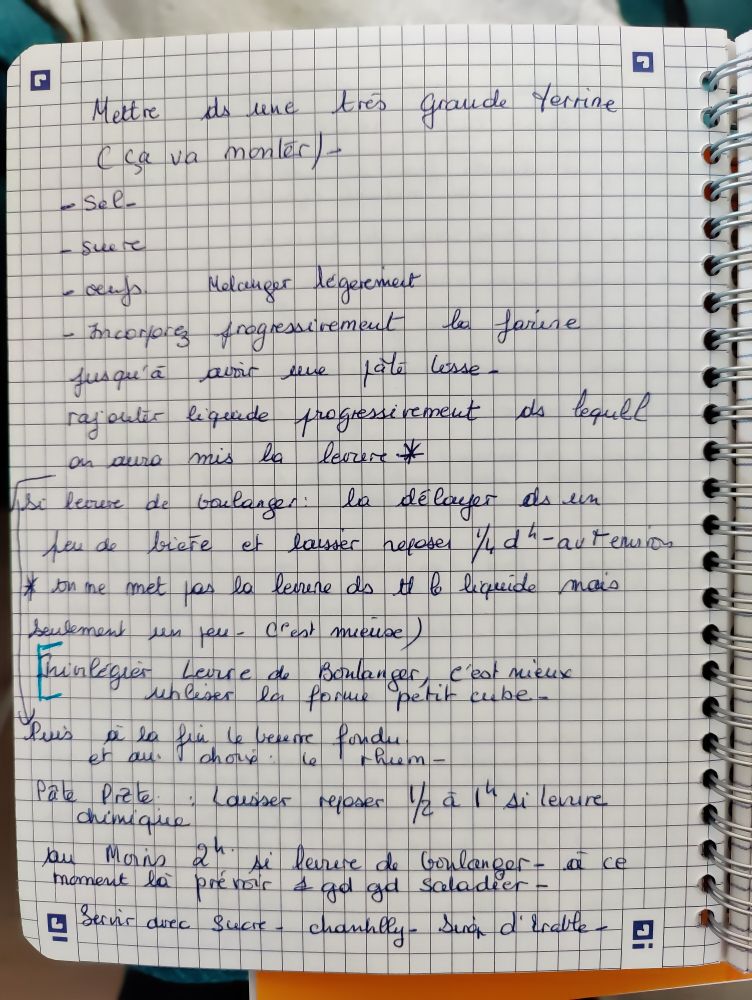 Mettre ds une très grande terrine
(ça va monter) -
- Sel -
- sucre
- oeufs. Mélanger légerement
- Incorporez progressivement la farine
jusqu'à avoir une pâte lisse -
rajouter liquide progressivement ds lequell
on aura mis la levure *
Si levure de boulanger : la délayer ds un
peu de bière et laisser reposer 1/4 d'h -
* on ne met pas la levure ds tt le liquide mais
seulement un peu - (c'est mieux)
Privilégier Levure de Boulanger, c'est mieux
utiliser la forme petit cube -
Puis à la fin le beurre fondu
et au choix : le rhum -
Pâte Prête : Laisser reposer 1/2 à 1h si levure
chimique
au Moins 2h si levure de boulanger - à ce
moment là prévoir 1 gd gd saladier -
Servir avec Sucre - chantilly - Sirop d'érable -